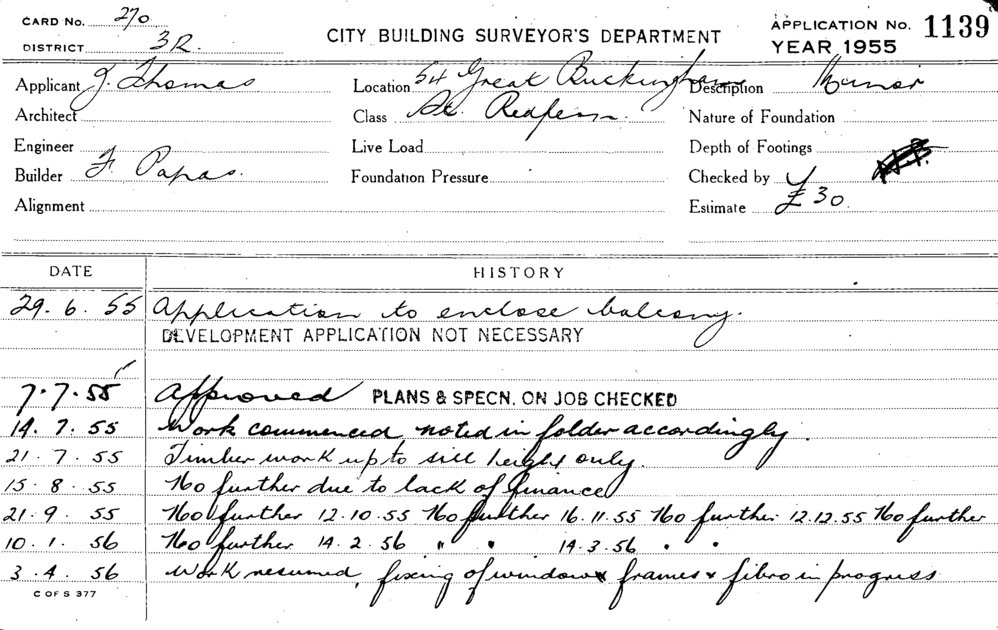 CARD No. 270
DISTRICT 3R.
CITY BUILDING SURVEYOR'S DEPARTMENT
APPLICATION No. 1139
YEAR 1955
Applicant J. Thomas
Location 54 Great Buckingham
Description Minor
Architect
Class St. Redfern.
Nature of Foundation
Engineer
Live Load
Depth of Footings
Builder F. Papas.
Foundation Pressure
Checked by
Alignment
Estimate £30.
DATE HISTORY
29. 6. 55 Application to enclose balcony.
DEVELOPMENT APPLICATION NOT NECESSARY
7. 7. 55 Approved PLANS & SPECN. ON JOB CHECKED
14. 7. 55 Work commenced, noted in folder accordingly.
21. 7. 55 Timber work up to sill height only.
15. 8. 55 No further due to lack of finance
21. 9. 55 No further 12.10.55 No further 16.11.55 No further 12.12.55 No further
10. 1. 56 No further 14.2.56 " " 14.3.56 " "
3. 4. 56 Work resumed, fixing of window frames & fibro in progress
C OF S 377